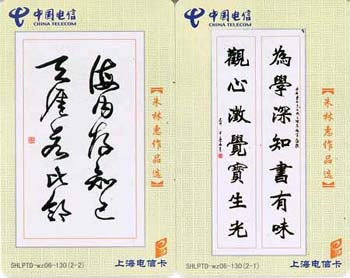 中国电信
CHINA TELECOM
海内存知己
天涯若比邻
朱林惠作品选
SHLPTD-wz06-130(2-2)
上海电信卡
中国电信
CHINA TELECOM
為學深知書有味
觀心澂覺實生光
朱林惠作品选
SHLPTD-wz06-130(2-1)
上海电信卡